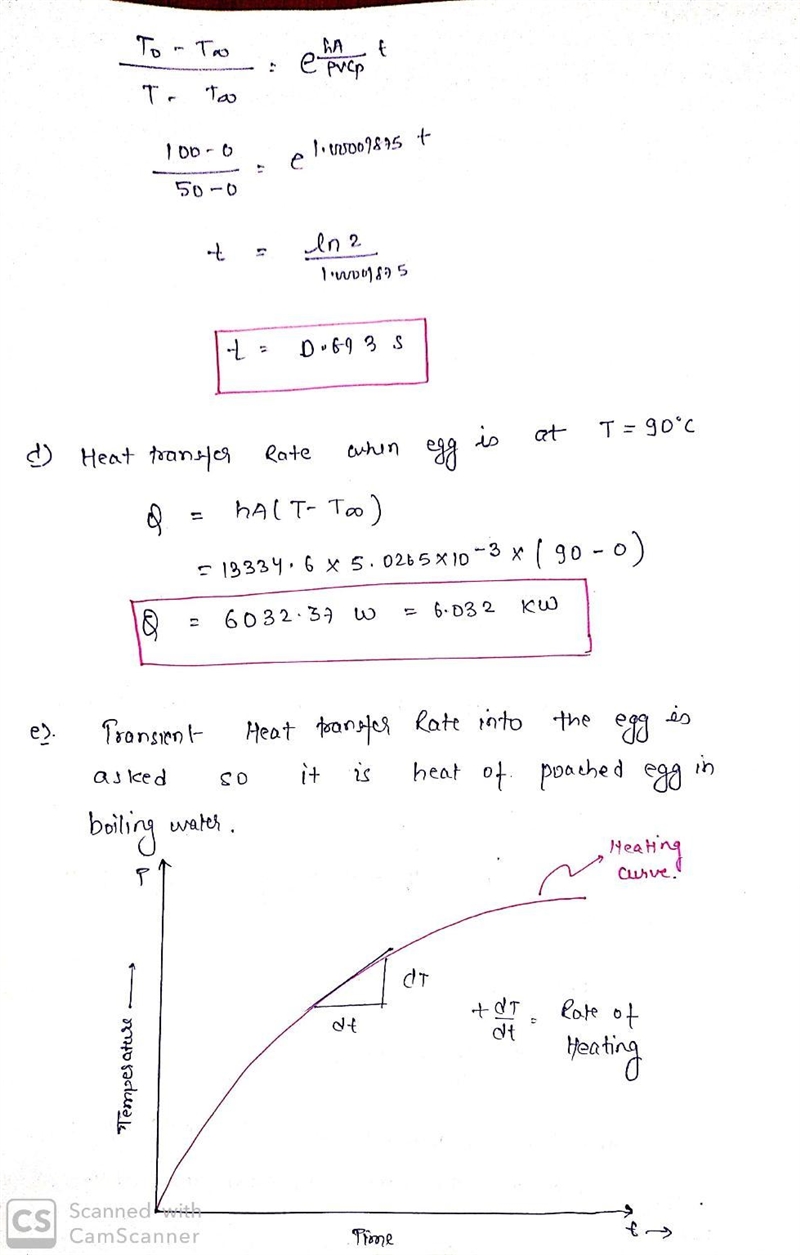 To - T∞ / T - T∞ = e^(hA/ρVCp) t
100-0 / 50-0 = e t
t = ln 2 /
t = 0.693 s
d) Heat transfer Rate when egg is at T = 90°C
Q = hA(T- T∞)
= 13334.6 x 5.0265x10-3 x (90-0)
Q = 6032.37 W = 6.032 KW
e). Transient Heat transfer Rate into the egg is
asked so it is heat of poached egg in
boiling water.
Heating
curve.
T
dT
dt
+dT/dt = Rate of
Heating
Temperature →
Time
t →
CS Scanned with
CamScanner